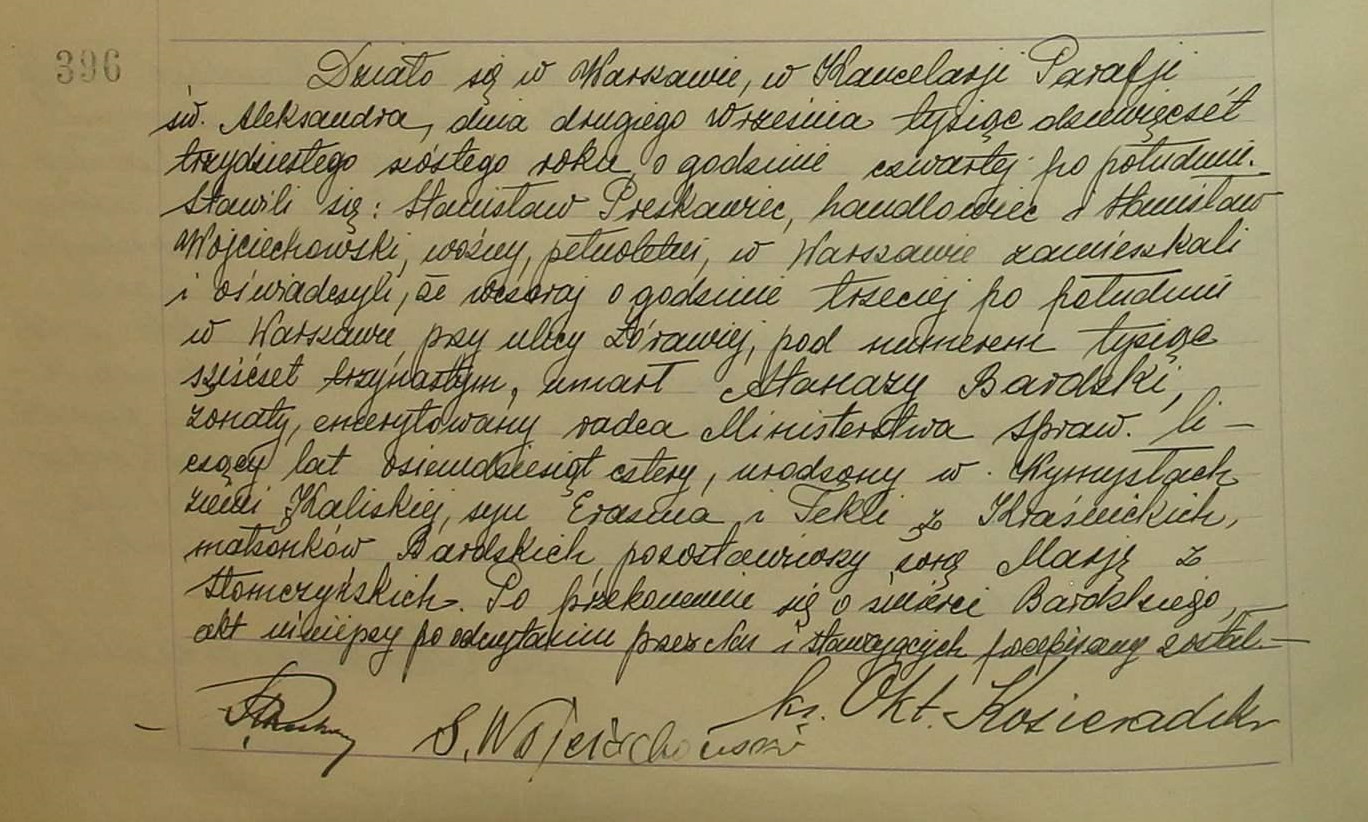 396
Działo się w Warszawie, w Kancelarji Parafji
św. Aleksandra, dnia drugiego Września tysiąc dziewięćset
trzydziestego szóstego roku, o godzinie czwartej po południu.
Stawili się: Stanisław Preskawiec, handlowiec i Stanisław
Wojciechowski, woźny, pełnoletni, w Warszawie zamieszkali
i oświadczyli, że wczoraj o godzinie trzeciej po południu
w Warszawie przy ulicy Żórawiej, pod numerem tysiąc
sześćset trzynastym, umarł Atanazy Bardzki,
żonaty, emerytowany radca Ministerstwa Spraw. li-
czący lat osiemdziesiąt cztery, urodzony w
ziemi Kaliskiej, syn Erazma i Tekli z Kraśnickich,
małżonków Bardzkich pozostawiwszy żonę Marję z
Słomczyńskich. Po przekonaniu się o śmierci Bardzkiego,
akt niniejszy po odczytaniu przez Nas i stawających podpisany został.
S. Wojciechowski ks. Okt. Kosieradzki